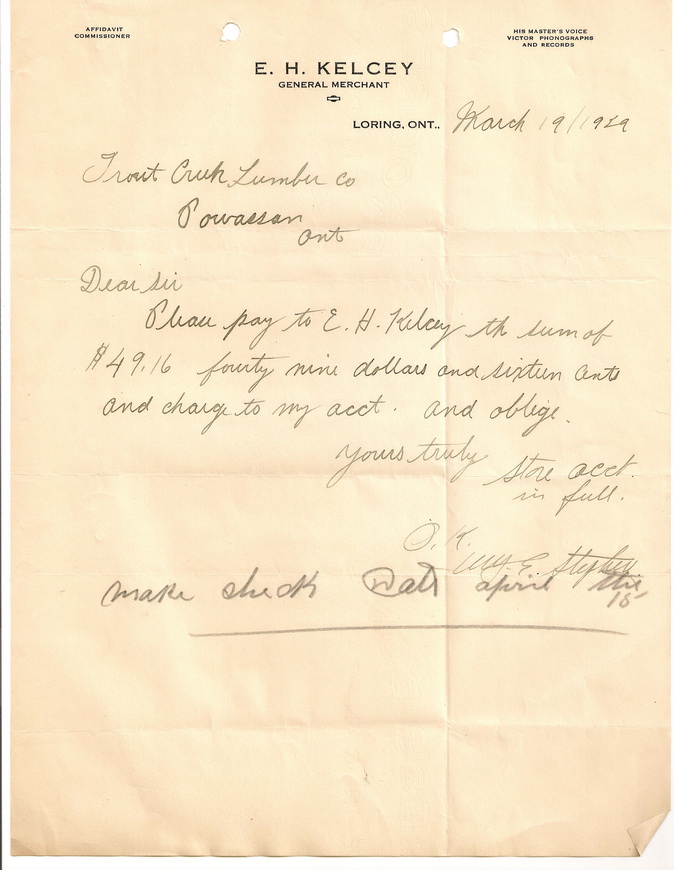 AFFIDAVIT
COMMISSIONER
HIS MASTER'S VOICE
VICTOR PHONOGRAPHS
AND RECORDS
E. H. KELCEY
GENERAL MERCHANT
LORING, ONT., March 19/1929
Trout Creek Lumber Co
Powassan
Ont
Dear Sir
Please pay to E. H. Kelcey th sum of
$49.16 fourty nine dollars and sixteen cents
and charge to my acct. and oblige.
Yours truly
Store acct.
in full.
O.K.
Wm. E. Stephens
make check Date april the
15